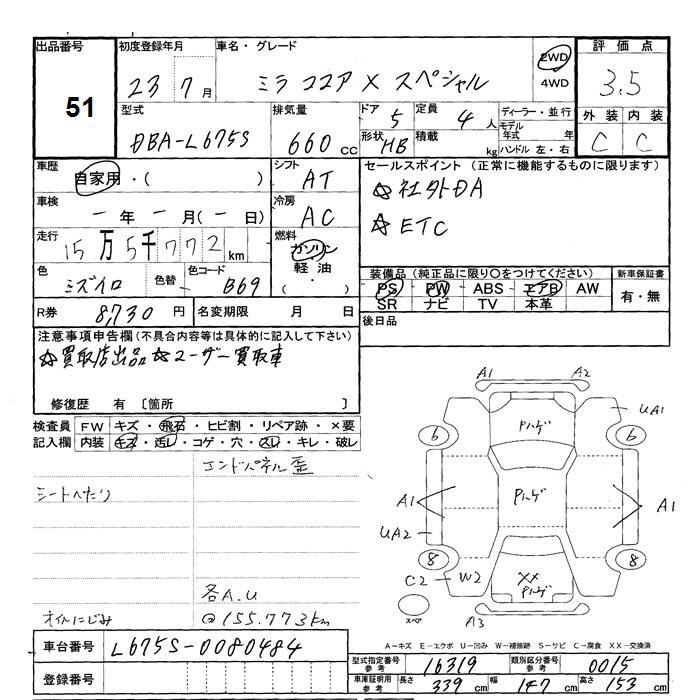 出品番号
51
初度登録年月
23 7月
車名・グレード
ミラ ココア X スペシャル
2WD
4WD
評価点
3.5
外装 内装
C C
型式
DBA-L675S
排気量
660 cc
ドア 5
形状 HB
定員 4人
積載 kg
ディーラー・並行
モデル年式 年
ハンドル 左・右
車歴
自家用・( )
シフト
AT
セールスポイント (正常に機能するものに限ります)
☆社外DA
☆ETC
車検
ー年ー月(ー日)
冷房
AC
走行
15万5千772km
燃料
ガソリン
軽油
・
( )
色
ミズイロ
色替
色コード
B69
装備品 (純正品に限り○をつけてください)
PS PW ABS エアB AW
SR ナビ TV 本革
新車保証書
有・無
R券 8,730円
名変期限 月 日
後日品
注意事項申告欄(不具合内容等は具体的に記入して下さい)
☆買取店出品☆ユーザー買取車
修復歴 有 〔箇所 〕
検査員記入欄
FW キズ・飛石・ヒビ割・リペア跡・×要
内装 キズ・汚レ・コゲ・穴・スレ・キレ・破レ
エンドパネル歪
シートへたり
各A.U
オイルにじみ
@155.773km
A1 A2
UA1
6 6
Pハゲ
Pハゲ
A1 A1
UA2
8 8
C2 W2
XX
Pハゲ
スペア
A3
A-キズ E-エクボ U-凹み W-補修跡 S-サビ C-腐食 XX-交換済
車台番号
L675S-0080484
登録番号
型式指定番号 参考 16319
類別区分番号 参考 0015
車庫証明用 参考 長さ 339cm 幅 147cm 高さ 153cm